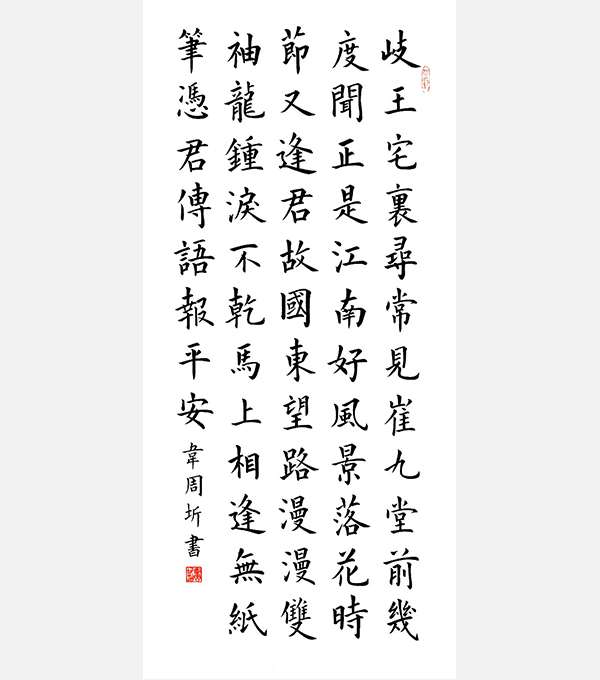 岐王宅裏尋常見崔九堂前幾
度聞正是江南好風景落花時
節又逢君故國東望路漫漫雙
袖龍鍾淚不乾馬上相逢無紙
筆憑君傳語報平安
韋周圻書